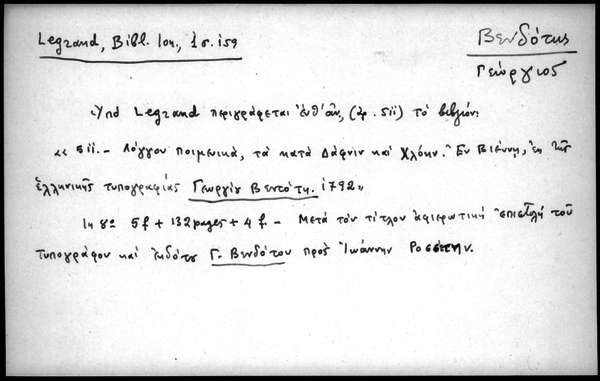 Legrand, Bibl. Ion., 1 σ. 159
Βενδότης
Γεώργιος
Ὑπό Legrand περιγράφεται ἐνθ' ἀν, (ἀρ. 511) τό βιβλίον:
« 511. – Λόγγου ποιμενικά, τά κατά Δάφνιν καί Χλόην. Ἐν Βιέννῃ, ἐκ τῆς
ἑλληνικῆς τυπογραφίας Γεωργίου Βεντότη. 1792»
In 8º 5 f + 132 pages + 4 f – Μετά τόν τίτλον ἀφιερωτική ἐπιστολή τοῦ
τυπογράφου καί ἐκδότου Γ. Βενδότου πρός Ἰωάννην